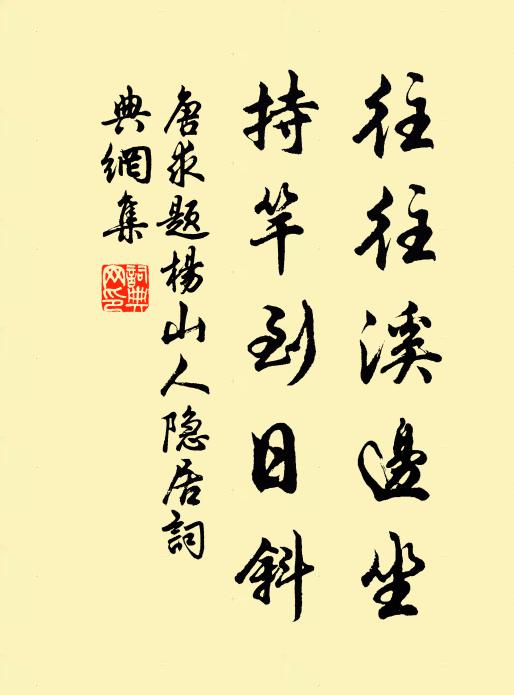 往往溪邊坐
持竿到日斜
唐求題楊山人隐居詞
典網集
詞典网印